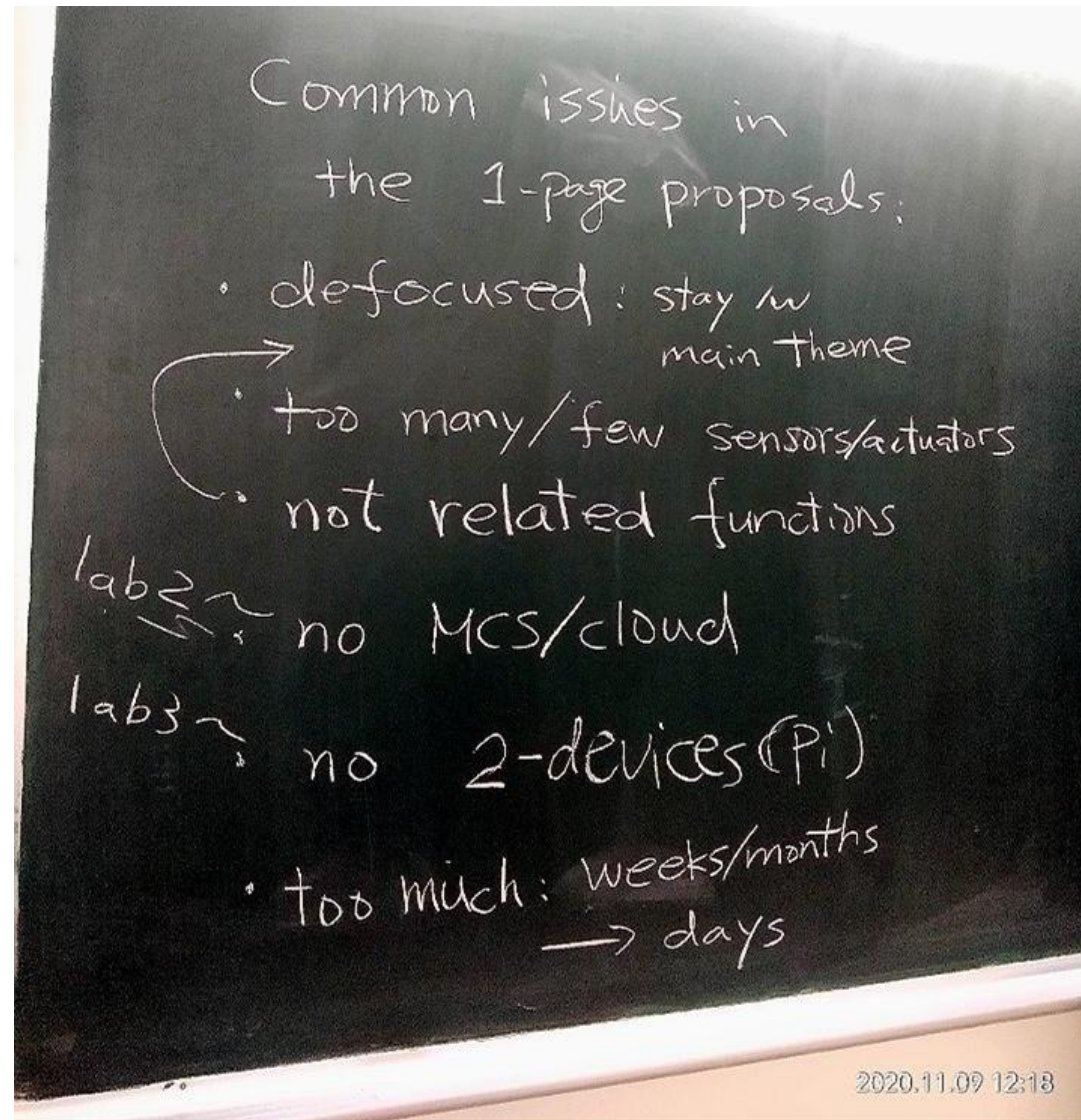 Common issues in
the 1-page proposals:
• defocused: stay /w
main theme
• too many/few sensors/actuators
• not related functions
lab2~
• no MCS/cloud
lab3~
• no 2-devices(Pi)
• too much: weeks/months
→ days
2020.11.09 12:18